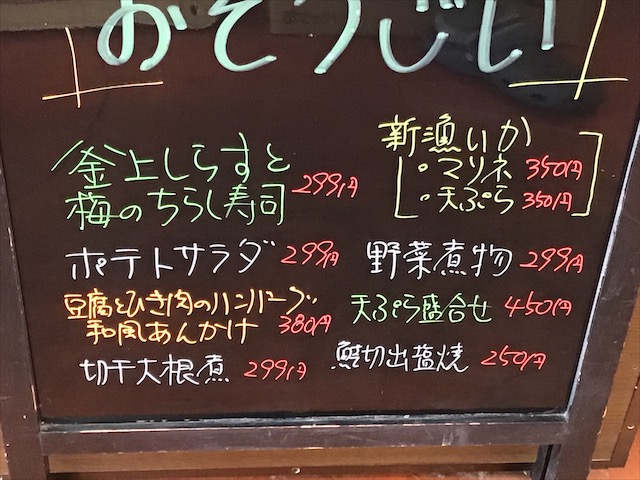 おそうじい
釜上しらすと
梅のちらし寿司 299円
ポテトサラダ 299円
豆腐とひき肉のハンバーグ
和風あんかけ 380円
切干大根煮 299円
新漁いか
・マリネ 350円
・天ぷら 350円
野菜煮物 299円
天ぷら盛合せ 450円
鮭切出塩焼 250円